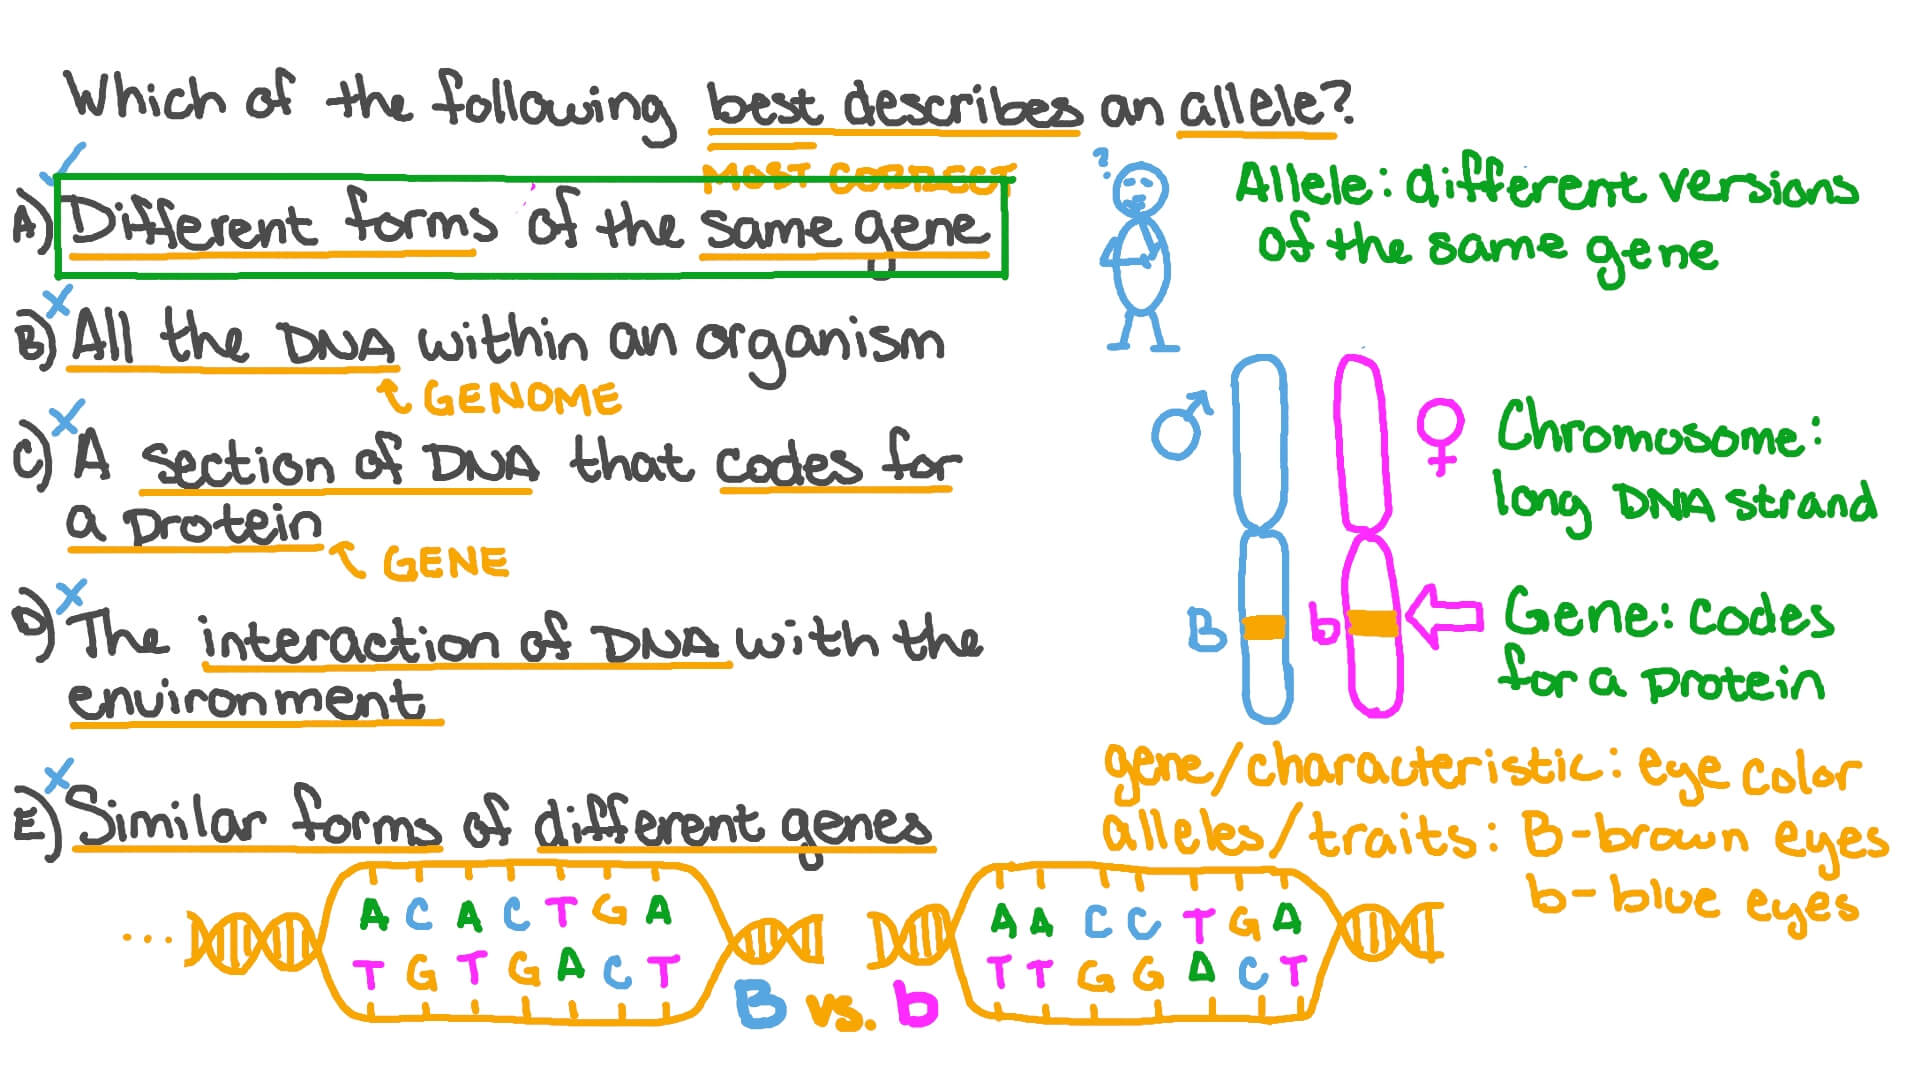 Which of the following best describes an allele?
MOST CORRECT
A) Different forms of the same gene
B) All the DNA within an organism
GENOME
C) A section of DNA that codes for
a protein
GENE
D) The interaction of DNA with the
environment
E) Similar forms of different genes
?
Allele: different versions
of the same gene
♂
♀
Chromosome:
long DNA strand
B
b
Gene: codes
for a protein
gene/characteristic: eye color
alleles/traits: B-brown eyes
b-blue eyes
...
A C A C T G A
T G T G A C T
B vs. b
A A C C T G A
T T G G A C T